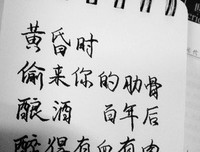 黄昏时
偷来你的肋骨
酿酒 百年后
醉得有血有肉